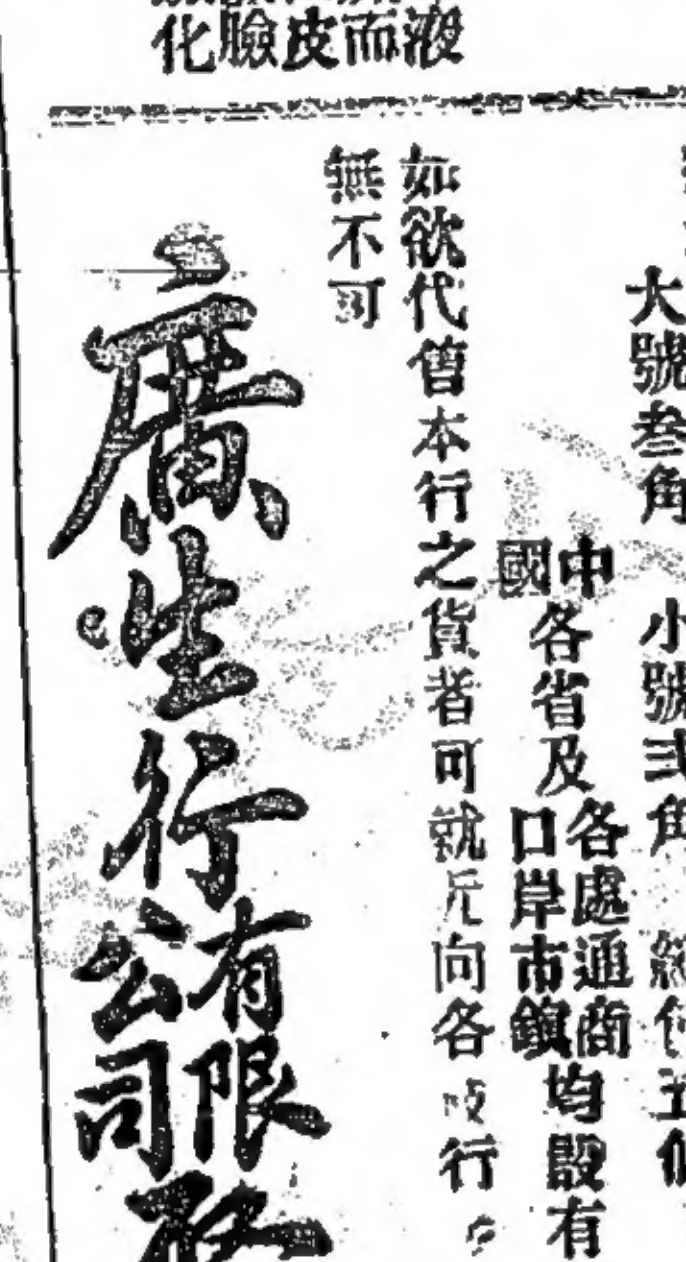 液而皮臉化
大號叁角 小號弍角
中國各省及各處通商口岸市鎮均設有
如欲代售本行之貨者可就近向各 行
無不可
廣生行有限公司